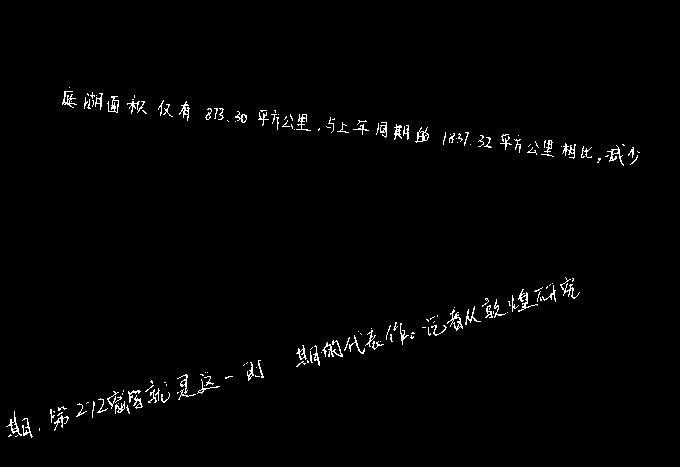 庭湖面积仅有873.30平方公里,与上年同期的1837.32平方公里相比,减少
期,第272窟就是这一时期的代表作。记者从敦煌研究